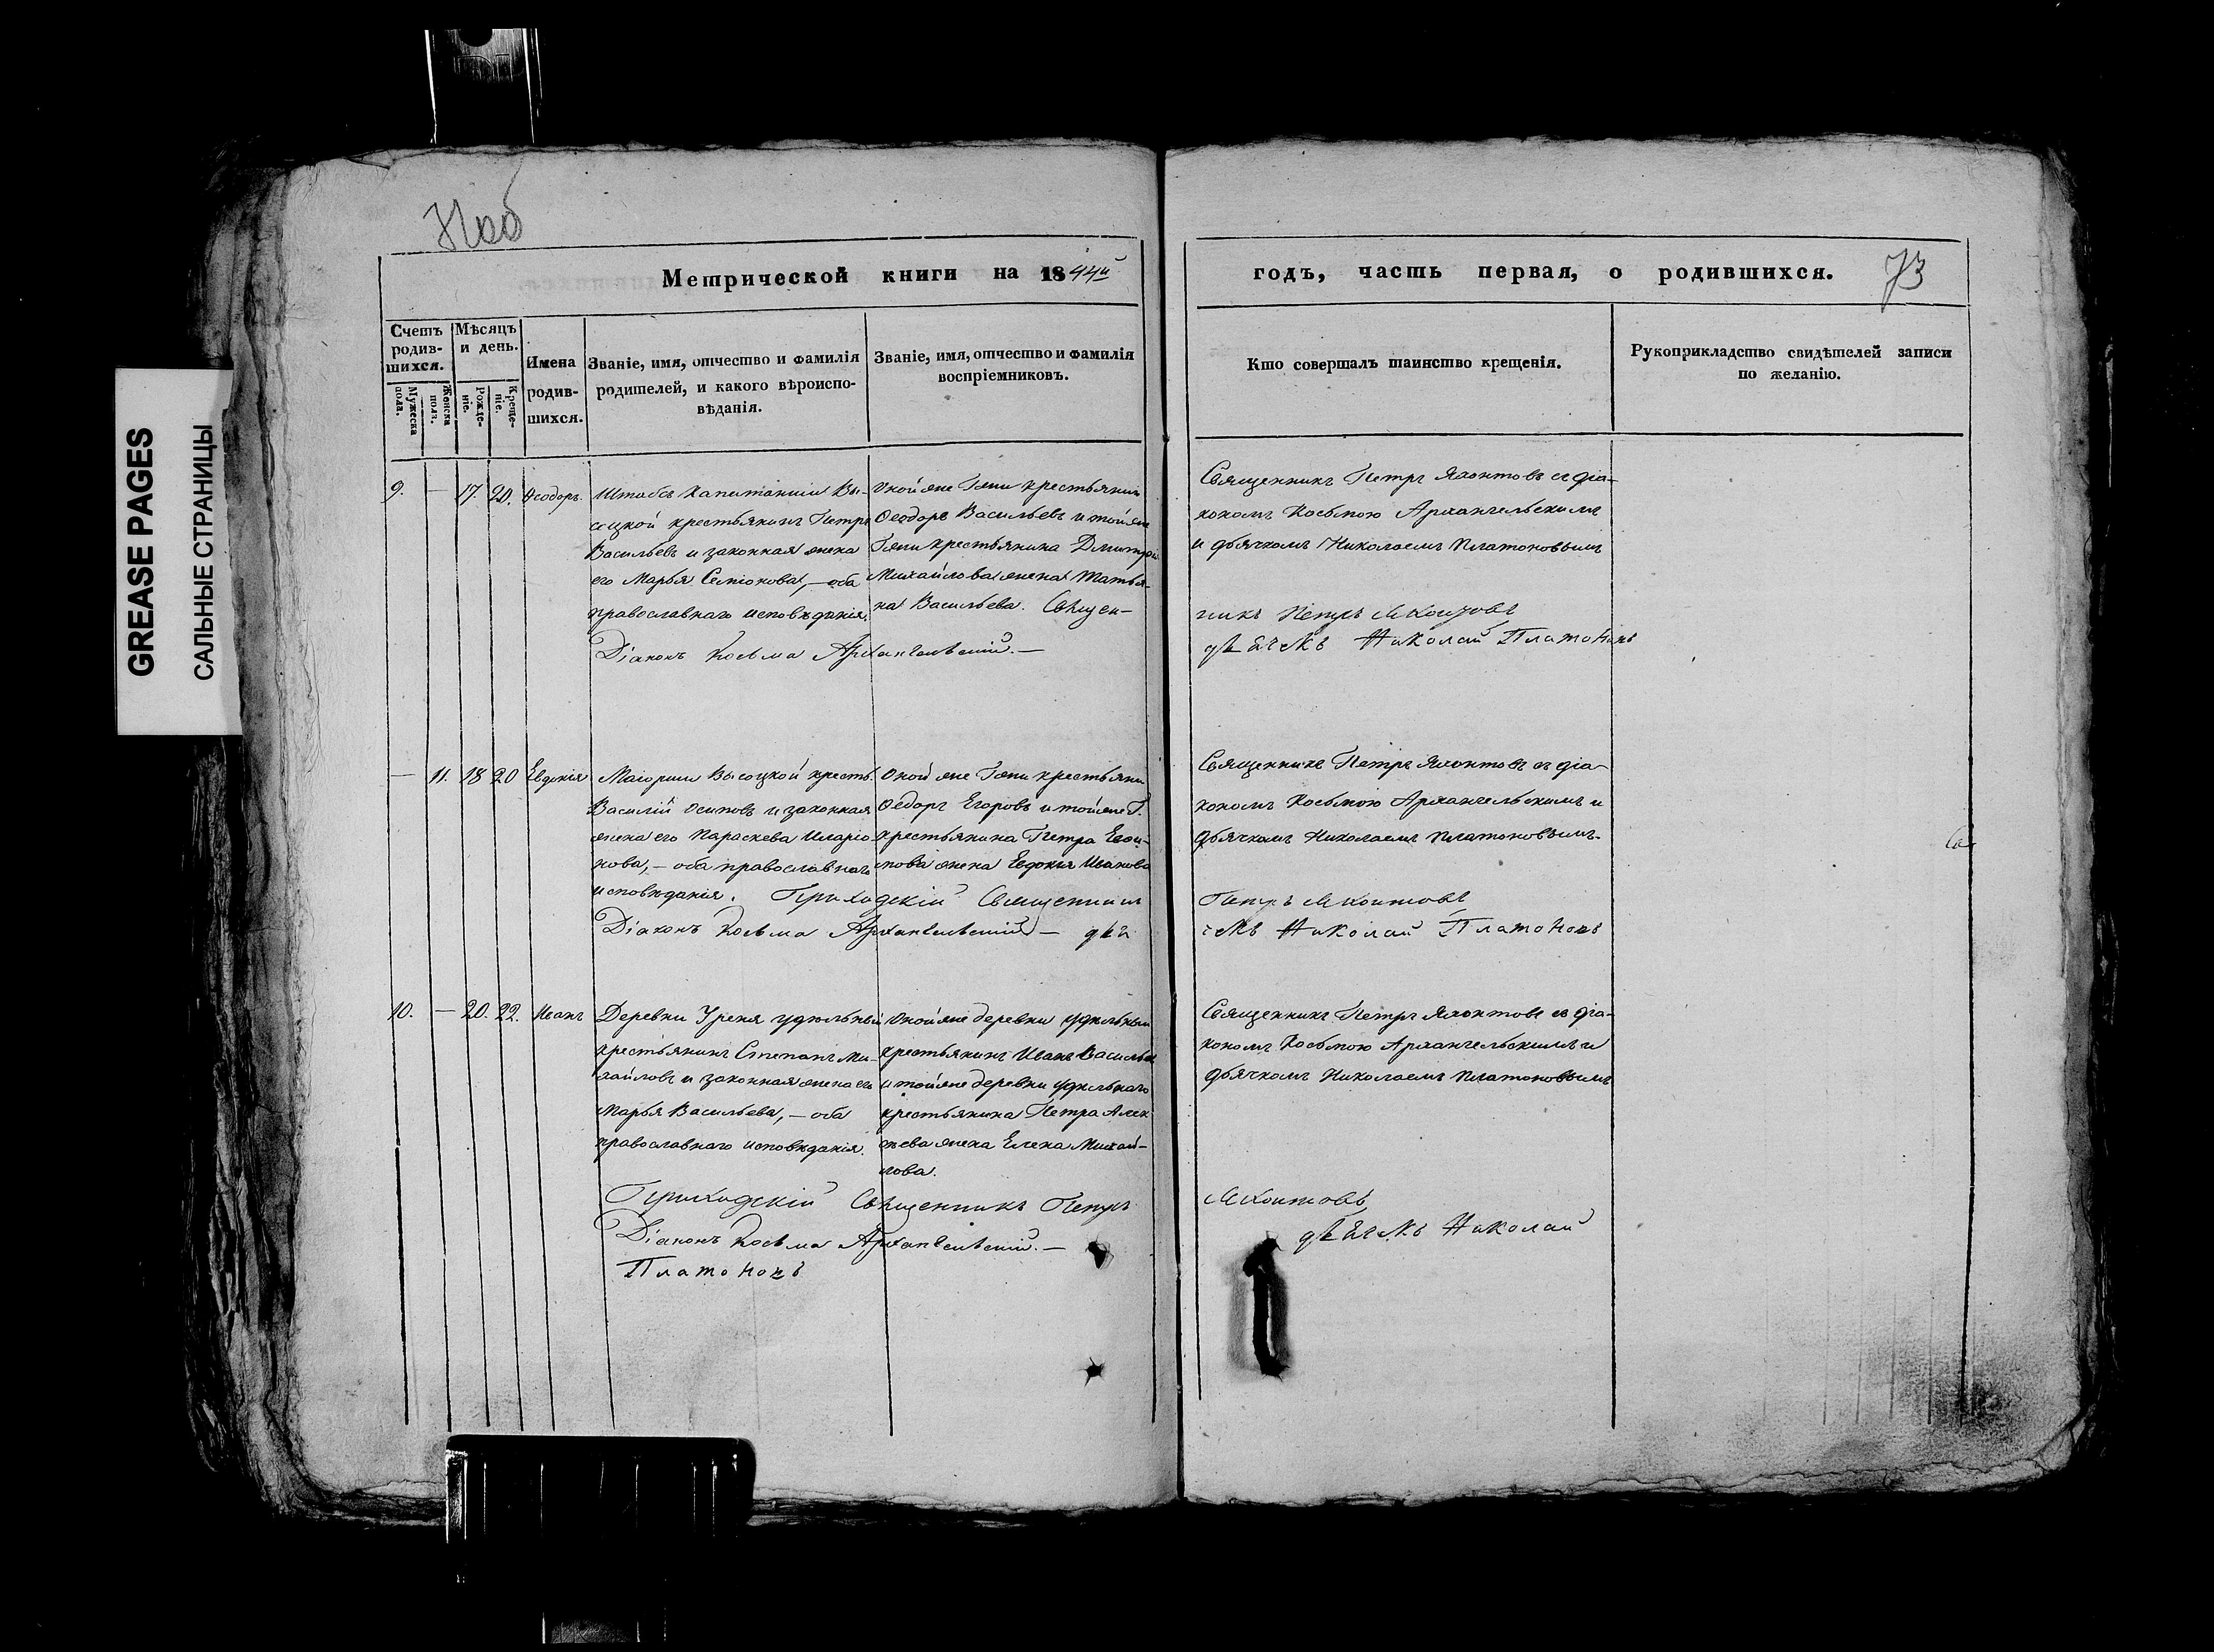 GREASE PAGES
САЛЬНЫЕ СТРАНИЦЫ
Метрической книги на 1844й
годъ, часть первая, о родившихся.
73
Счетъ родившихся.
Мужеска пола.
Женска пола.
Мѣсяцъ и день.
Рожденіе.
Крещеніе.
Имена родившихся.
Званіе, имя, отчество и фамилія
родителей, и какого вѣроиспо-
вѣданія.
Званіе, имя, отчество и фамилія
воспріемниковъ.
Кто совершалъ таинство крещенія.
Рукоприкладство свидѣтелей записи
по желанію.
9. — 17. 20. Ѳеодоръ.
Штабсъ Капитанши Вы-
соцкой крестьянинъ Петръ
Васильевъ и законная жена
его Марья Семіонова, — оба
православнаго исповѣданія.
Оной же Гжи крестьянинъ
Ѳеодоръ Васильевъ и той же
Гжи крестьянина Дмитрія
Михайлова жена Татья-
на Васильева.
Священникъ Петръ Яхонтовъ съ діа-
кономъ Косьмою Архангельскимъ
и дьячкомъ Николаемъ Платоновымъ
Священ-
никъ Петръ Яхонтовъ
Діаконъ Косьма Архангельскій. —
дьячекъ Николай Платоновъ
— 11. 18 20 Евдокія
Маіорши Высоцкой кресть.
Василій Осиповъ и законная
жена его Параскева Иларіо-
нова, — оба православнаго
исповѣданія.
Оной же Гжи крестьяни
Ѳедоръ Егоровъ и той же Г.
крестьянина Петра
жена Евдокія Иванова
Священникъ Петръ Яхонтовъ съ діа-
кономъ Косьмою Архангельскимъ и
дьячкомъ Николаемъ Платоновымъ.
Приходскій Священникъ
Петръ Яхонтовъ
Діаконъ Косьма Архангельскій — дья
чекъ Николай Платоновъ
10. — 20. 22. Иванъ
Деревни Уреня удѣльный
крестьянинъ Степанъ Ми-
хайловъ и законная жена его
Марья Васильева, — оба
православнаго исповѣданія.
Оной же деревни удѣльный
крестьянинъ Иванъ Васильев
и той же деревни удѣльнаго
крестьянина Петра Алек
жена Елена Михай-
лова.
Священникъ Петръ Яхонтовъ съ діа-
кономъ Косьмою Архангельскимъ и
дьячкомъ Николаемъ Платоновымъ
Приходскій Священникъ Петръ
Яхонтовъ
Діаконъ Косьма Архангельскій. —
дьячекъ Николай
Платоновъ